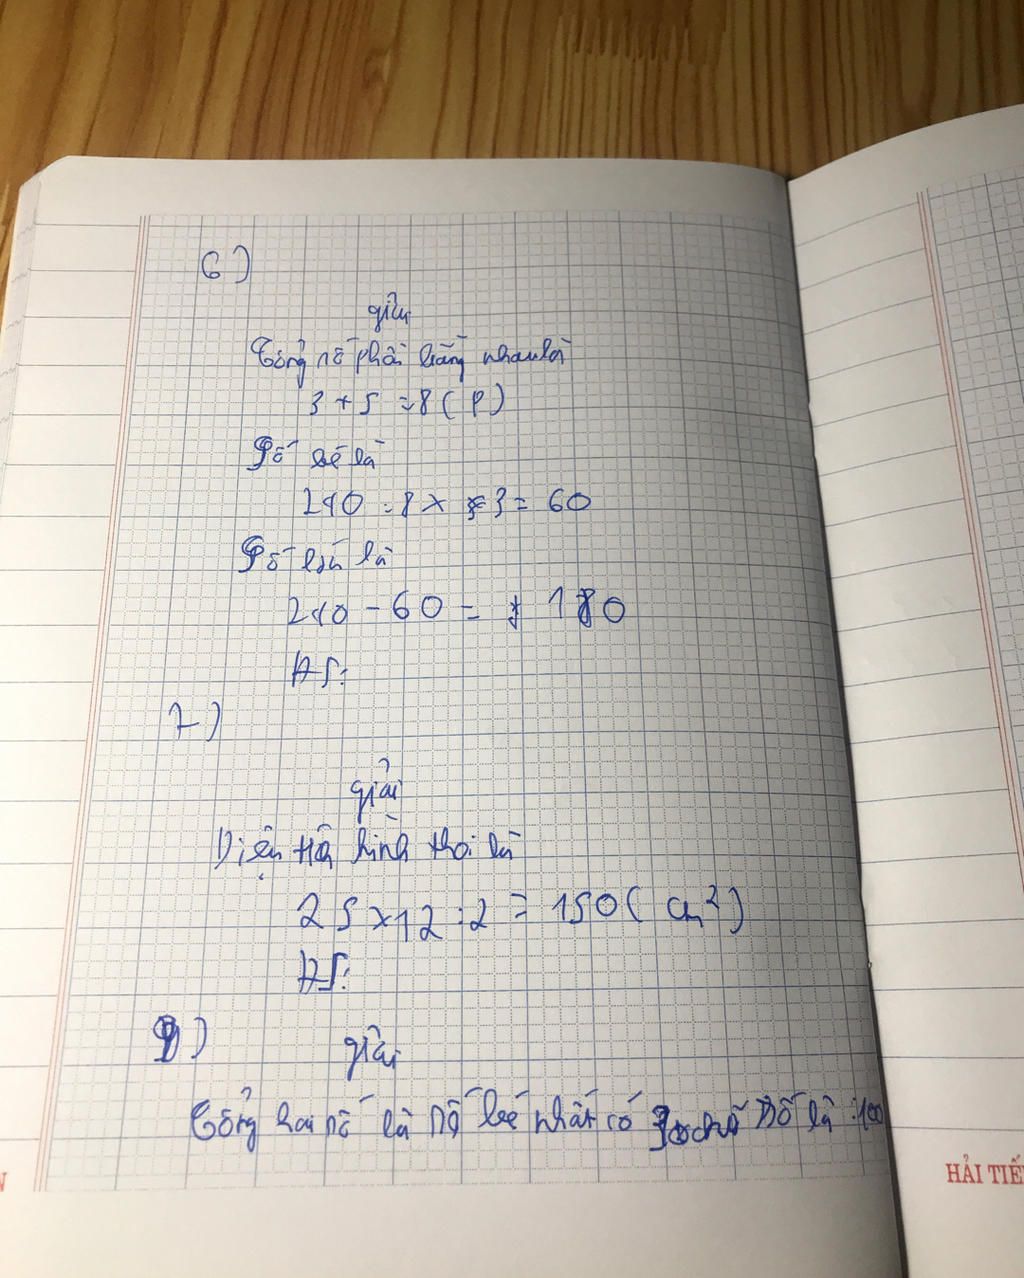 6)
giải
Tổng số phần bằng nhau là
3 + 5 = 8 ( P )
Số bé là
240 : 8 x 3 = 60
Số lớn là
240 - 60 = 180
ĐS:
7)
giải
Diện tích hình thoi là
25 x 12 : 2 = 150 ( cm² )
ĐS:
9)
giải
Tổng hai số là số bé nhất có 3 chữ số là : 100
HẢI TIẾ